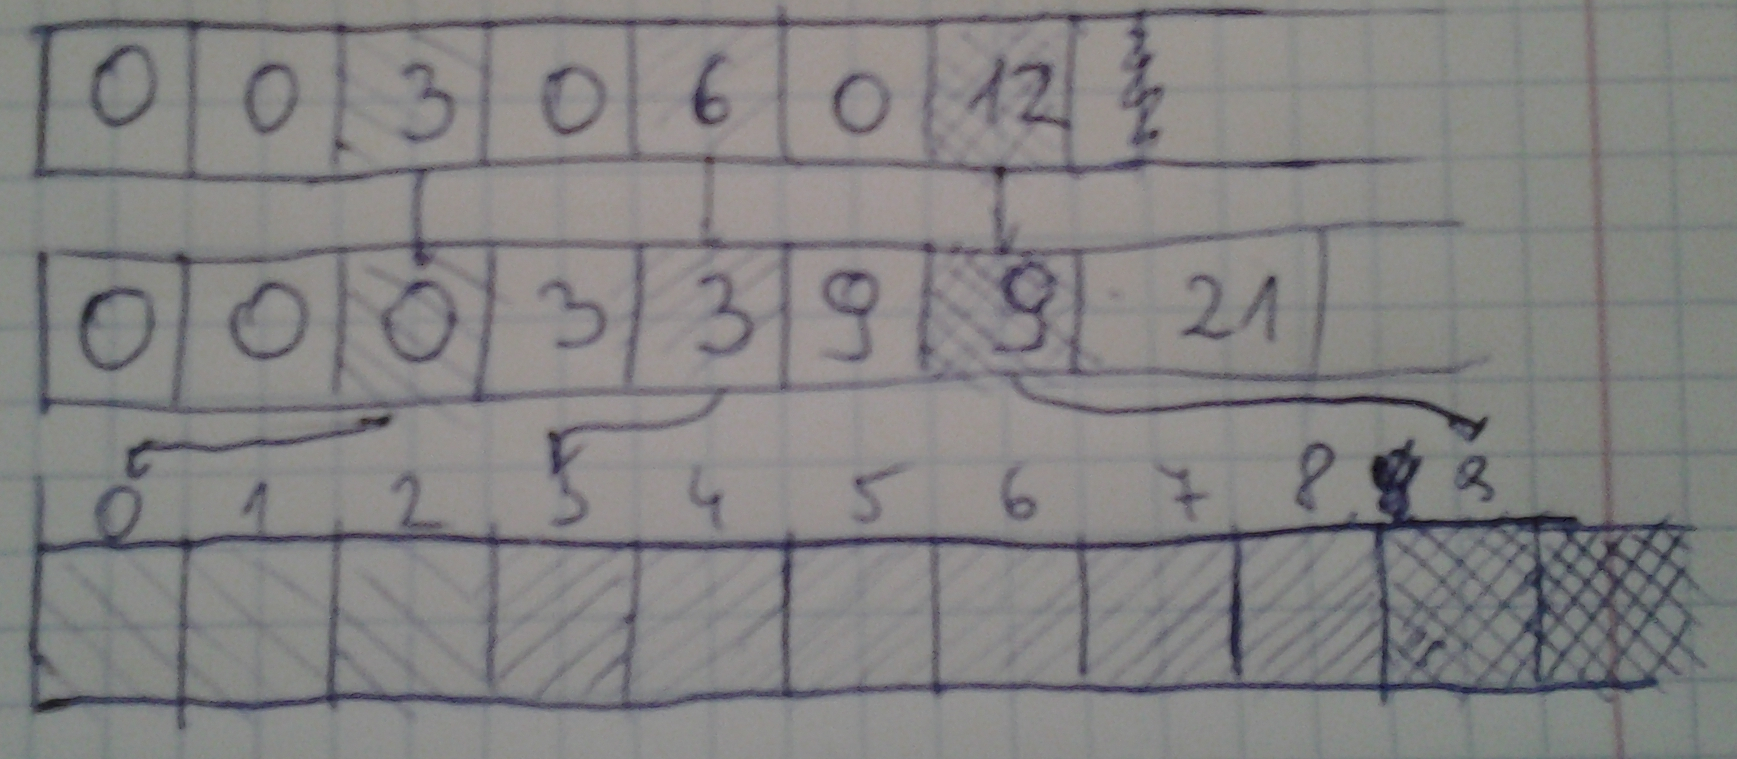 0 0 3 0 6 0 12
0 0 0 3 3 9 9 21
0 1 2 3 4 5 6 7 8 9